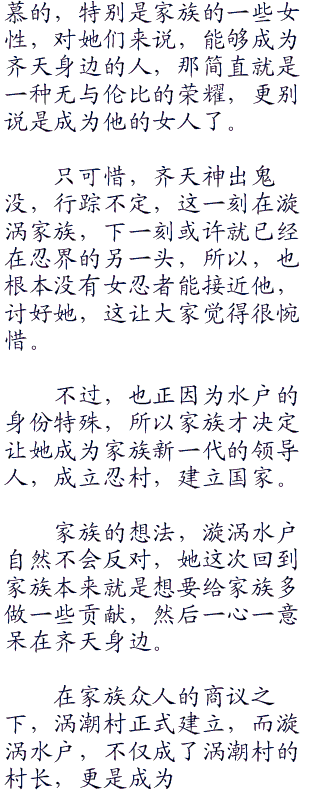 慕的，特别是家族的一些女
性，对她们来说，能够成为
齐天身边的人，那简直就是
一种无与伦比的荣耀，更别
说是成为他的女人了。
只可惜，齐天神出鬼
没，行踪不定，这一刻在漩
涡家族，下一刻或许就已经
在忍界的另一头，所以，也
根本没有女忍者能接近他，
讨好她，这让大家觉得很惋
惜。
不过，也正因为水户的
身份特殊，所以家族才决定
让她成为家族新一代的领导
人，成立忍村，建立国家。
家族的想法，漩涡水户
自然不会反对，她这次回到
家族本来就是想要给家族多
做一些贡献，然后一心一意
呆在齐天身边。
在家族众人的商议之
下，涡潮村正式建立，而漩
涡水户，不仅成了涡潮村的
村长，更是成为